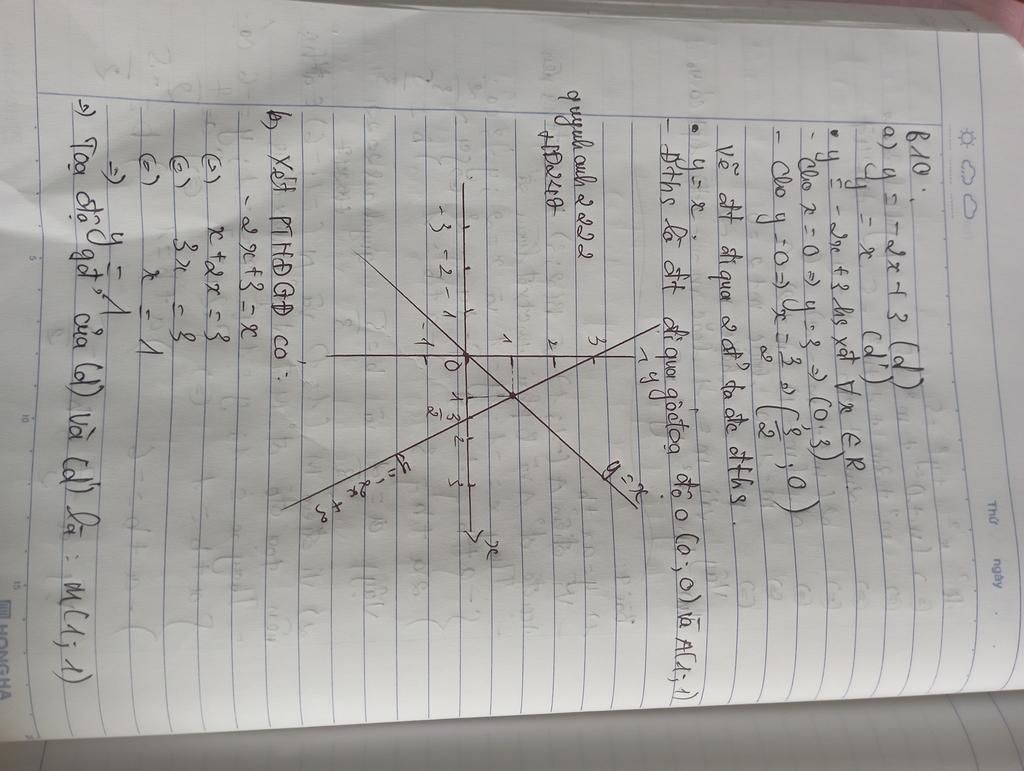 Thứ ngày
B10.
a) y = -2x + 3 (d)
y = x (d')
• y = -2x + 3 hs xđ ∀x ∈ R
- Cho x = 0 => y = 3 => (0, 3)
- Cho y = 0 => x = 3/2 => (3/2 ; 0)
Vẽ đt đi qua 2 đ' ta đc đths.
• y = x.
- Đths là đt đi qua gốc tọa độ O (0 ; 0) và A(1 ; 1)
quynhanh2222
y
y = x
3
2
1
-3 -2 -1 0 1 3/2 2 3 x
-1
y = -2x + 3
b) Xét PTHĐGĐ có:
-2x + 3 = x
(=) x + 2x = 3
(=) 3x = 3
(=) x = 1
=> y = 1
=> Tọa độ gđ' của (d) và (d') là : M(1 ; 1)
HONGHA
5 10 15